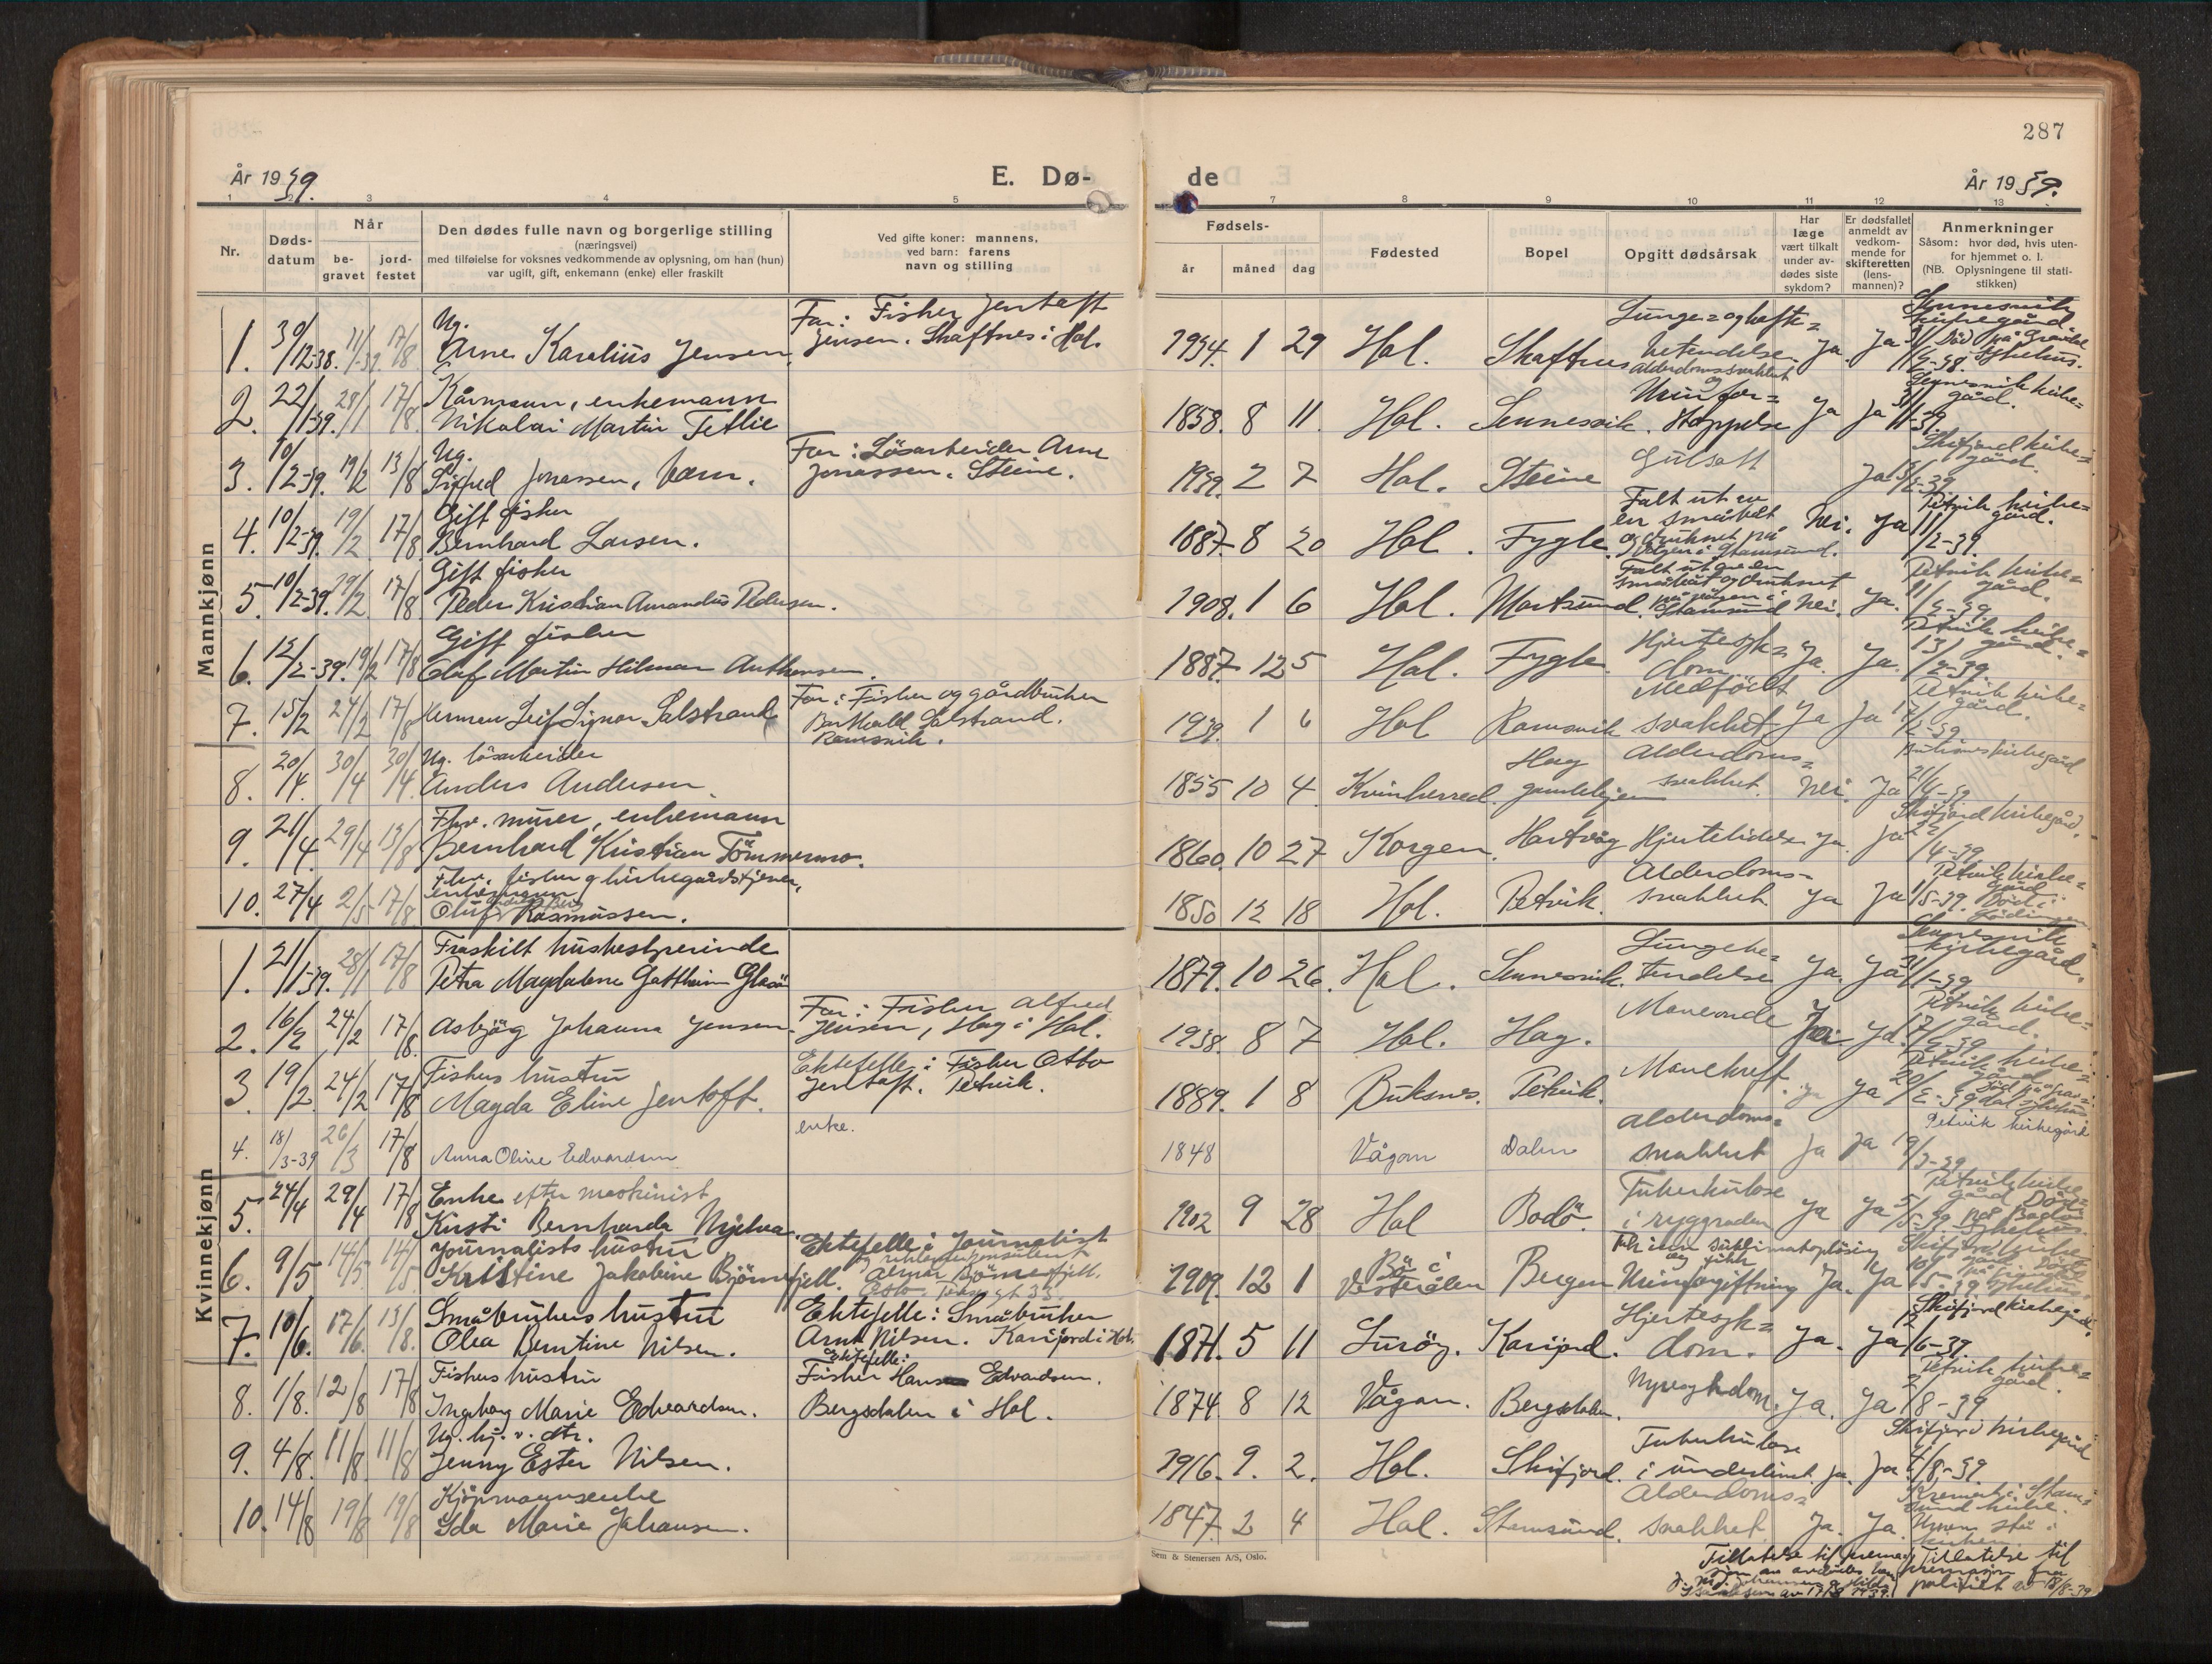 287
År 1939.
E. Dø-
de
År 1939.
1 2 3 4 5
7 8 9 10 11 12 13
Nr.
Døds-
datum
Når
be-
gravet
jord-
festet
Den dødes fulle navn og borgerlige stilling
(næringsvei)
med tilføielse for voksnes vedkommende av oplysning, om han (hun)
var ugift, gift, enkemann (enke) eller fraskilt
Ved gifte koner: mannens,
ved barn: farens
navn og stilling
Fødsels-
år
måned
dag
Fødested
Bopel
Opgitt dødsårsak
Har
læge
vært tilkalt
under av-
dødes siste
sykdom?
Er dødsfallet
anmeldt av
vedkom-
mende for
skifteretten
(lens-
mannen)?
Anmerkninger
Såsom: hvor død, hvis uten-
for hjemmet o. l.
(NB. Oplysningene til stati-
stikken)
Mannkjønn
1. 30/12-38. 11/1-39. 17/8 Ug.
Arne Karolius Jensen.
Far: Fisker Jentoft
Jensen. Skaftnes i Hol.
1934. 1 29 Hol. Skaftnes Lunge= og
betendelse. Ja. Ja
Sennesvik
kirkegård.
2. 22/1-39. 28/1 17/8 Kårmann, enkemann
Nikolai Martin Tetlie
1858. 8 11. Hol. Sennesvik. Alderdomssvakhet
og
Urinfor=
stoppelse Ja Ja
Sennesvik kirke=
gård.
3. 10/2-39. 19/2 13/8 Ug.
Sigfred Jonassen, barn.
Far: Løsarbeider Arne
Jonassen. Steine.
1939. 2 7 Hol. Steine Gulsott Ja
Skifjord kirke=
gård.
4. 10/2-39. 19/2. 17/8 Gift fisker
Bernhard Larsen.
1887. 8 20 Hol. Fygle. Falt ut av
en småbåt
og druknet på
vågen i Stamsund. Nei. Ja 11/2-39.
Petvik kirke=
gård.
5. 10/2-39. 17/8 Gift fisker
Peder Kristian Amandus Pedersen.
1908. 1 6 Hol. Mortsund. Falt ut av en
småbåt og druknet
på vågen i
Stamsund Nei. Ja. 11/2-39
Petvik kirke=
gård.
6. 12/2-39. 19/2 17/8 Gift fisker
Olaf Martin Hilmar Anthonsen.
1887. 12 5 Hol. Fygle. Hjertesyk=
dom Ja. Ja. 13/2-39
Petvik kirke=
gård.
7. 15/2 24/2 17/8 Herman Leif Signar Salstrand
Far: Fisker og gårdbruker
Salstrand.
Ramsvik.
1939. 1 6 Hol Ramsvik Medfødt
svakhet Ja Ja
Petvik kirke=
gård.
8. 20/4. 30/4 30/4. Ug. løsarbeider
Anders Andersen.
1855 10 4. Kvinherred. Hag
gamlehjem Alderdoms=
svakhet. Nei. Ja 21/4-39
Buksnes kirkegård
9. 21/4. 29/4 13/8 Fhv. murer, enkemann
Bernhard Kristian Tömmermo.
1860. 10 27 Korgen. Hartvåg Hjertelidelse Ja. Ja 22/4-39
Skifjord kirkegård.
10. 27/4 2/5 17/8 Fhv. fisker og kirkegårdstjener,
enkemann
Oluf Rasmussen.
1850 12 18 Hol. Petvik. Alderdoms=
svakhet Ja Ja 1/5-39.
Petvik kirke=
gård.
Død i
Kvinnekjønn
1. 21/1-39. 28/1 17/8 Fraskilt husbestyrerinde
Petra Magdalene
1879. 10 26. Hol. Sennesvik. Lungebe=
tendelse Ja. Ja
Sennesvik
kirkegård.
2. 16/2 24/2 17/8. Asbjørg Johanna Jensen.
Far: Fisker Alfred
Jensen, Hag i Hol.
1938. 8 7 Hol. Hag. Maveonde Ja. Ja. 17/2-39
Petvik kirke=
gård.
3. 19/2. 24/2 17/8 Fiskers hustru
Magda Eline Jentoft.
Ektefelle: Fisker Otto
Jentoft. Petvik.
1889. 1 8 Buksnes. Petvik. Mavekreft. Ja Ja 20/2-39
Petvik kirke=
gård
4. 18/3-39 26/3 17/8 Anna Oline Edvardsen
enke.
1848 Vågan Dalen Alderdoms=
svakhet Ja Ja 19/3-39
Petvik kirkegård
5. 24/4 29/4 17/8 Enke efter maskinist
Kirsti Bernharda Mjelva.
1902 9 28 Hol Bodø. Tuberkulose
i ryggraden Ja Ja 5/5-39
Petvik kirke=
gård Død
på Bodø
sykehus.
6. 9/5 14/5 14/5 Journalists hustru
Kristine Jakobine Bjørnefjell.
Ektefelle: Journalist
og reklamekonsulent
Bjørnefjell.
Oslo,
1909. 12 1 Bø i
Vesterålen Bergen Tok inn sublimatopløsning
og fikk
Urinforgiftning Ja. Ja
7. 10/6. 17/6. 13/8. Småbrukers hustru
Olea Berntine Nilsen.
Ektefelle: Småbruker
Arnt Nilsen. Karifjord i Hol.
1871. 5 11 Lurøy. Karifjord. Hjertesyk=
dom. Ja. Ja 12/6-39.
Skifjord kirkegård.
8. 1/8. 12/8 17/8 Fiskers hustru
Ingeborg Marie Edvardsen.
Ektefelle:
Fisker Hans Edvardsen.
Bergsdalen i Hol.
1874. 8 12 Vågan. Bergsdalen. Nyresykdom. Ja. Ja 2/8-39
Petvik kirke=
gård.
9. 4/8. 11/8. 11/8 Ug. hj. v. dtr.
Jenny Ester Nilsen.
1916. 9. 2. Hol. Skifjord. Tuberkulose
i underlivet. Ja. Ja.
Skifjord kirkegård
10. 14/8 19/8 19/8 Kjøpmannsenke
Ida Marie Johansen.
1847. 2 4 Hol. Stamsund. Alderdoms=
svakhet Ja. Ja.
Kremert i Stam=
sund kirke.
Urnen står i
kirken.
Sem & Stenersen A/S, Oslo.
Tillatelse til
Tillatelse til
kremasjon fra
politiet av 18/8-39